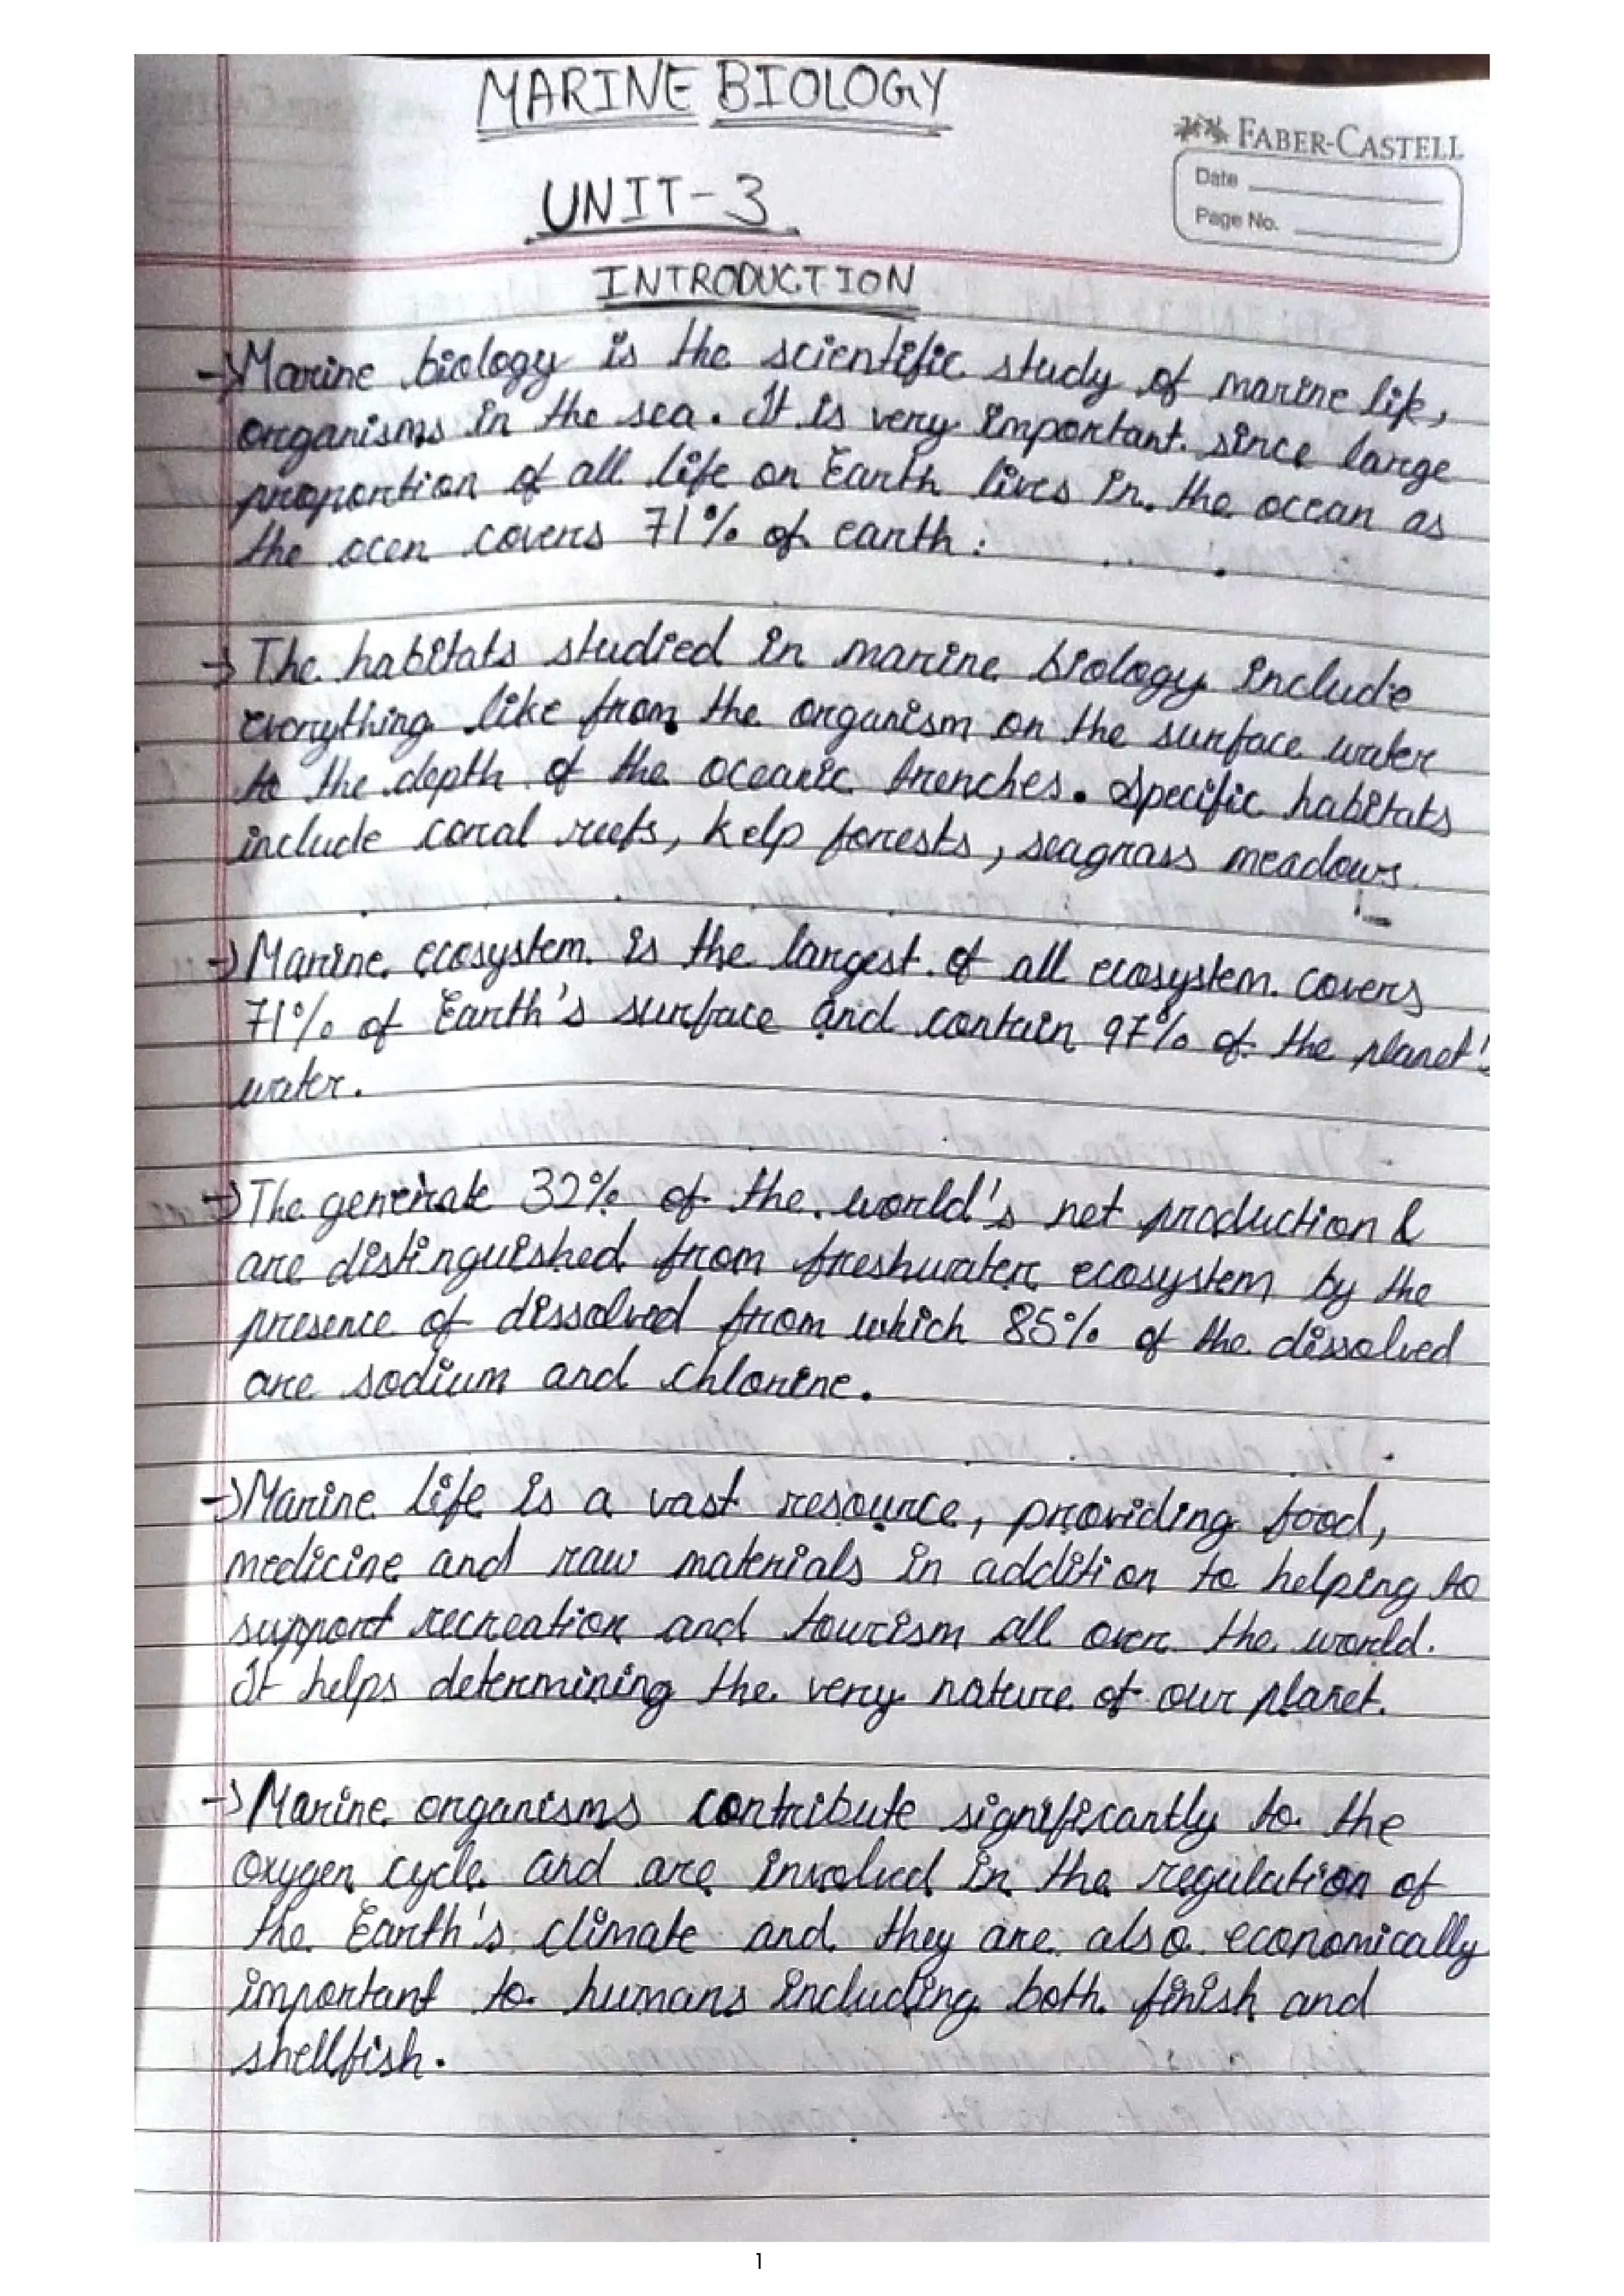 MARINE BIOLOGY
FABER-CASTELL
Date
UNIT-3
Page No.
INTRODUCTION
→Marine biology is the scientific study of marine life,
organisms in the sea. It is very important since large
proportion of all life on Earth lives in the ocean as
the ocen covers 71% of earth:
→The habitats studied in marine biology include
everything like from the organism on the surface water
to the depth of the oceanic trenches. Specific habitats
include coral reefs, kelp forrests, seagrass meadows
→Marine ecosystem is the largest of all ecosystem covers
71% of Earth's surface and contain 97% of the planet's
water.
→The generate 32% of the world's net production &
are distinguished from freshwater ecosystem by the
presence of dissolved from which 85% of the dissolved
are sodium and chlorine.
→Marine life is a vast resource, providing food,
medicine and raw materials in addition to helping to
support recreation and tourism all over the world.
It helps determining the very nature of our planet.
→Marine organisms contribute significantly to the
oxygen cycle and are involved in the regulation of
the Earth's climate and they are also economically
important to humans including both finish and
shellfish.
1